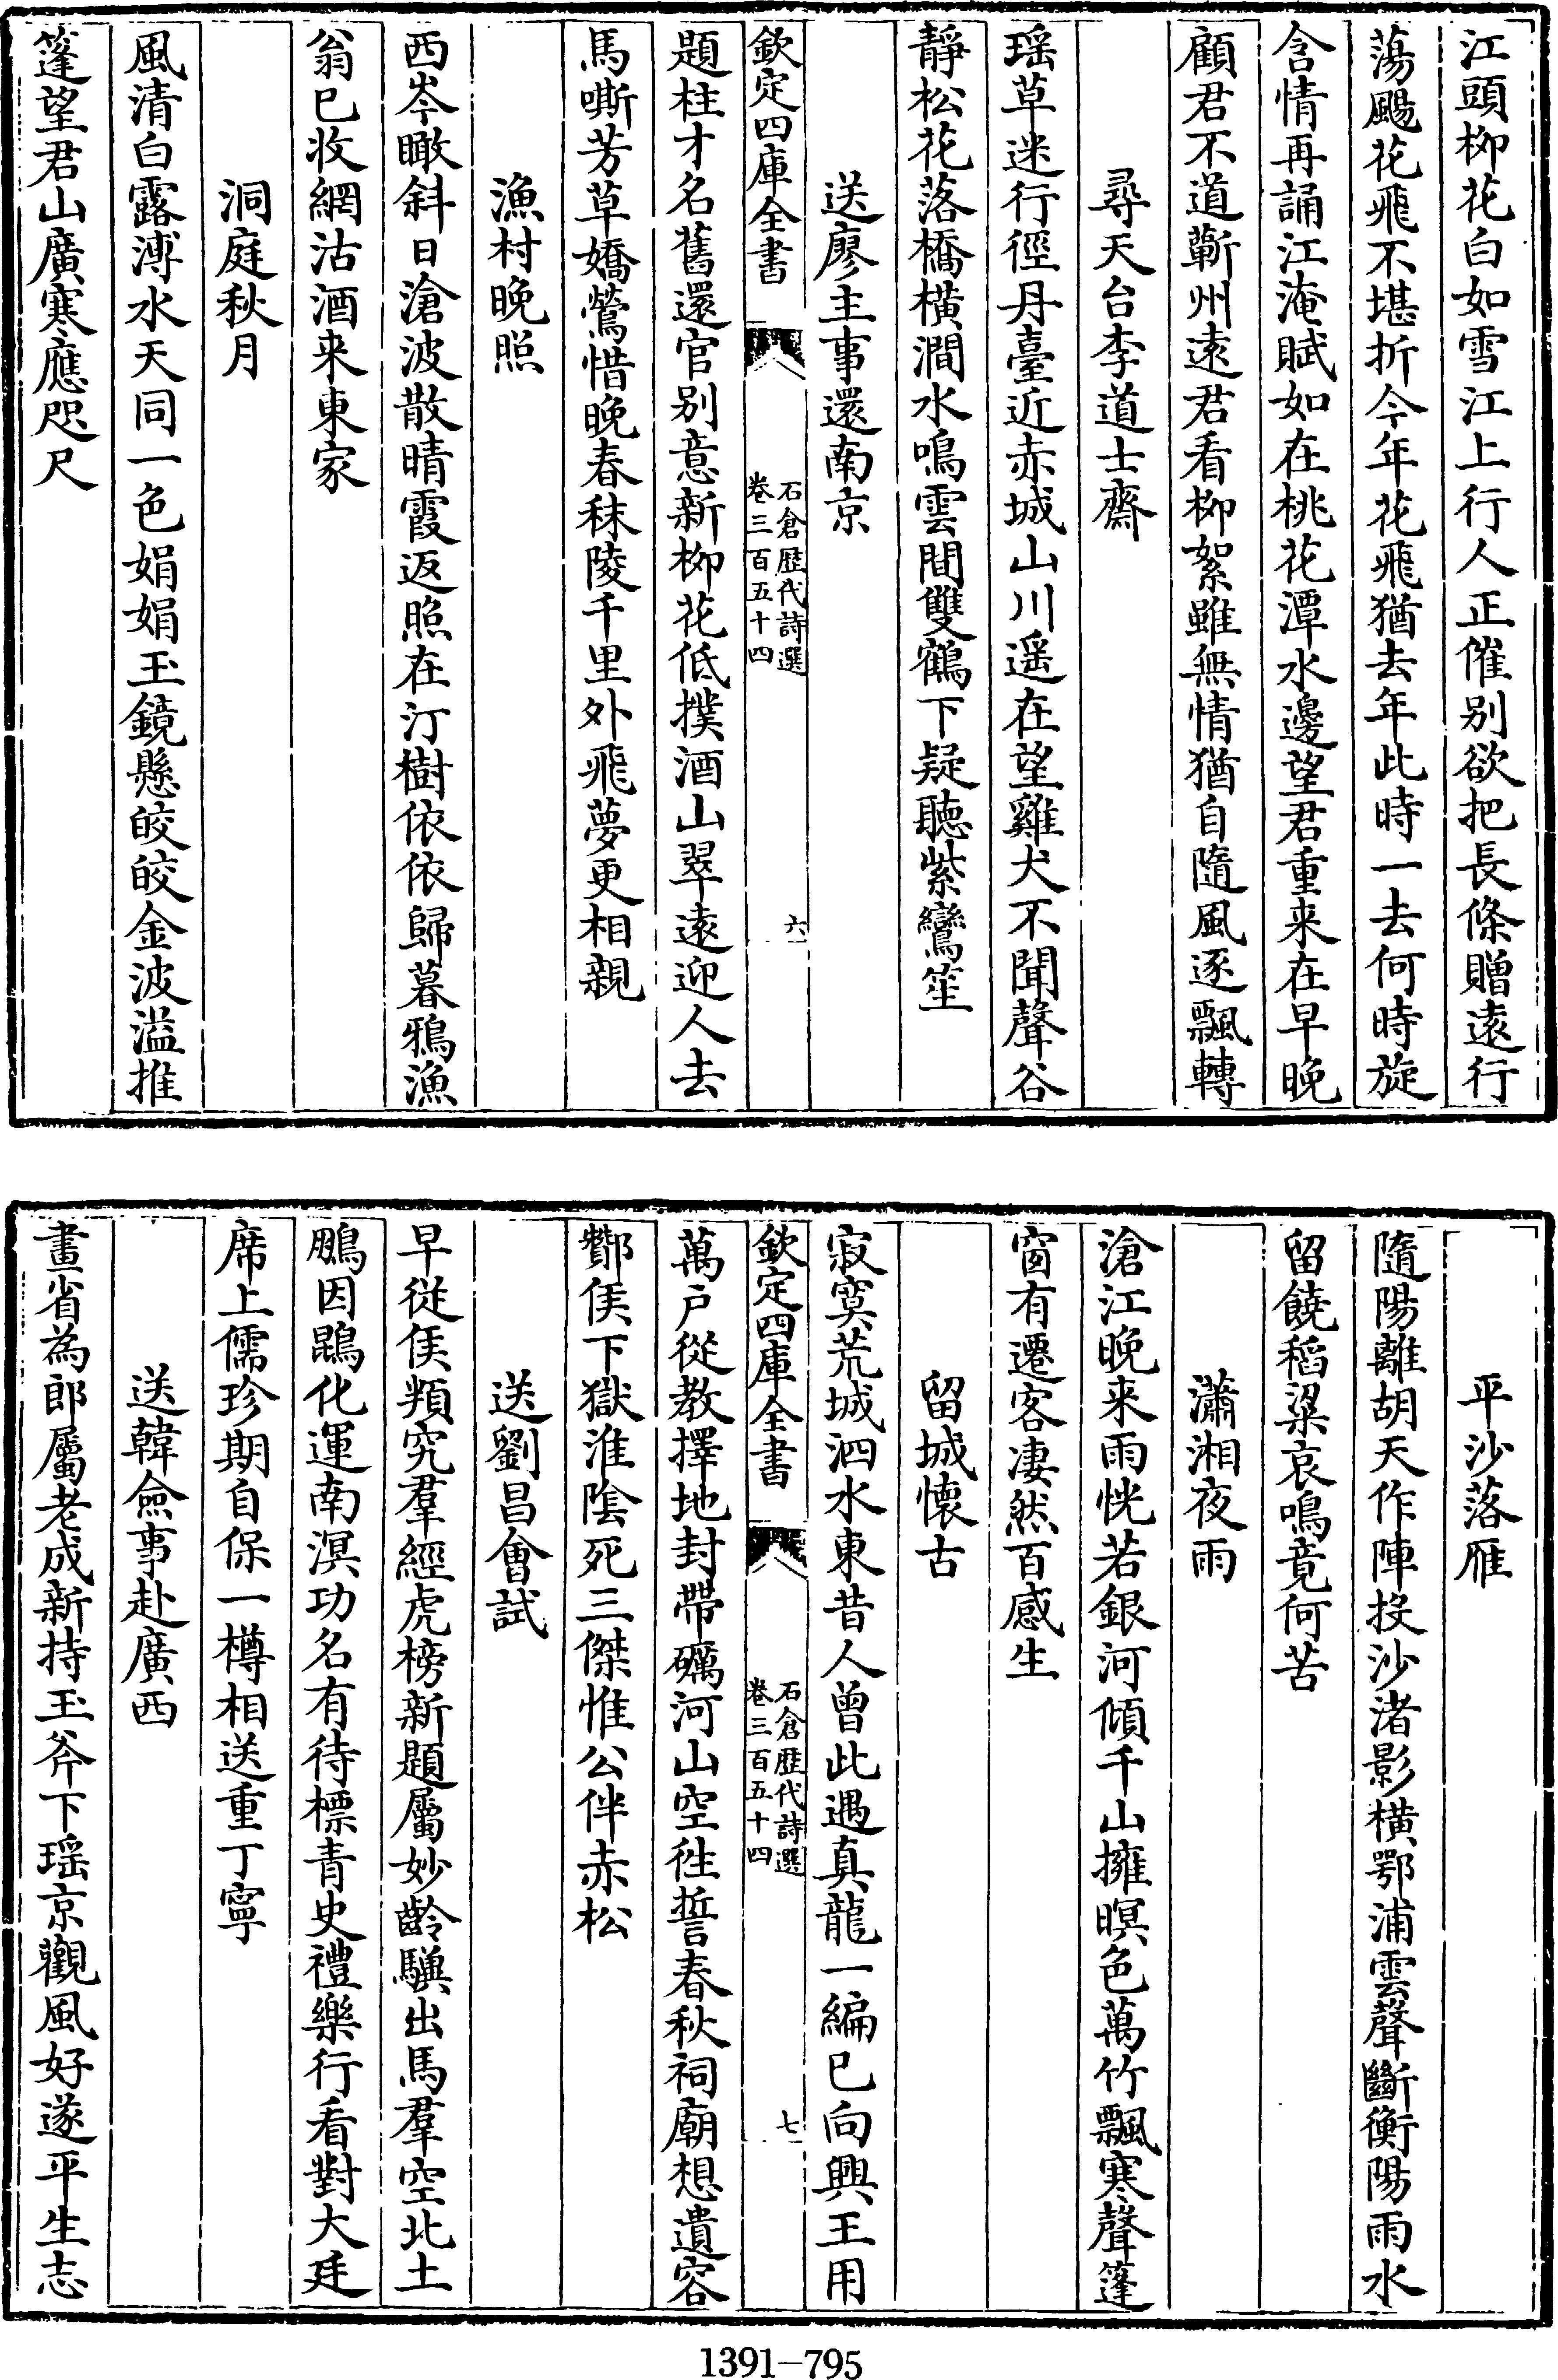 江頭柳花白如雪江上行人正催别欲把長條贈遠行
蕩颺花飛不堪折今年花飛猶去年此時一去何時旋
含情再誦江淹賦如在桃花潭水邊望君重来在早晚
顧君不道蘄州遠君看柳絮雖無情猶自隨風逐飄轉
尋天台李道士齋
瑶草迷行徑丹臺近赤城山川遥在望雞犬不聞聲谷
靜松花落橋横澗水鳴雲間雙鶴下疑聽紫鸞笙
送廖主事還南京
欽定四庫全書
石倉歴代詩選
卷三百五十四
六
題柱才名舊還官别意新柳花低撲酒山翠遠迎人去
馬嘶芳草嬌鶯惜晚春秣陵千里外飛夢更相親
漁村晚照
西岑瞰斜日滄波散晴霞返照在汀樹依依歸暮鴉漁
翁已收網沽酒来東家
洞庭秋月
風清白露溥水天同一色娟娟玉鏡懸皎皎金波溢推
篷望君山廣寒應咫尺
平沙落雁
隨陽離胡天作陣投沙渚影横鄂浦雲聲斷衡陽雨水
留饒稻粱哀鳴竟何苦
瀟湘夜雨
滄江晚来雨恍若銀河傾千山擁暝色萬竹飄寒聲篷
窗有遷客凄然百感生
留城懷古
寂寞荒城泗水東昔人曾此遇真龍一編已向興王用
欽定四庫全書
石倉歴代詩選
卷三百五十四
七
萬户從教擇地封帶礪河山空徃誓春秋祠廟想遺容
酇侯下獄淮陰死三傑惟公伴赤松
送劉昌會試
早從侯頖究羣經虎榜新題屬妙齡驥出馬羣空北土
鵬因鶤化運南溟功名有待標青史禮樂行看對大廷
席上儒珍期自保一樽相送重丁寧
送韓僉事赴廣西
畫省為郎屬老成新持玉斧下瑶京觀風好遂平生志
1391-795